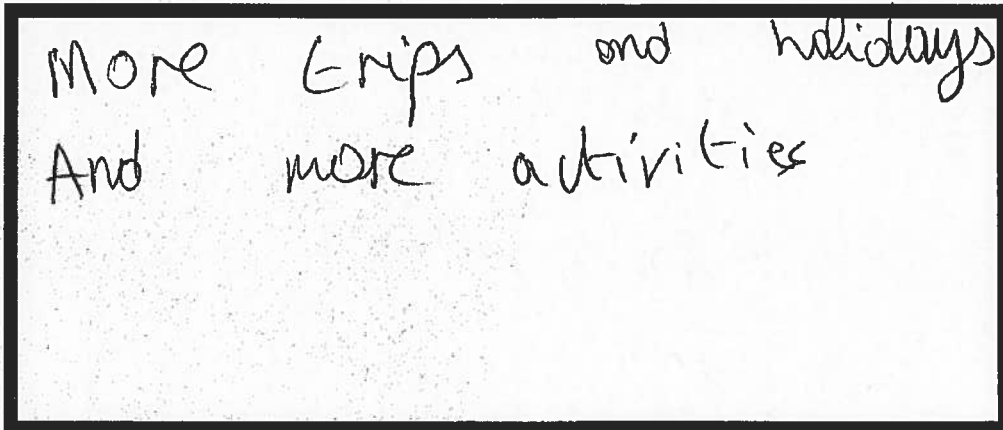 More trips and holidays
And more activities